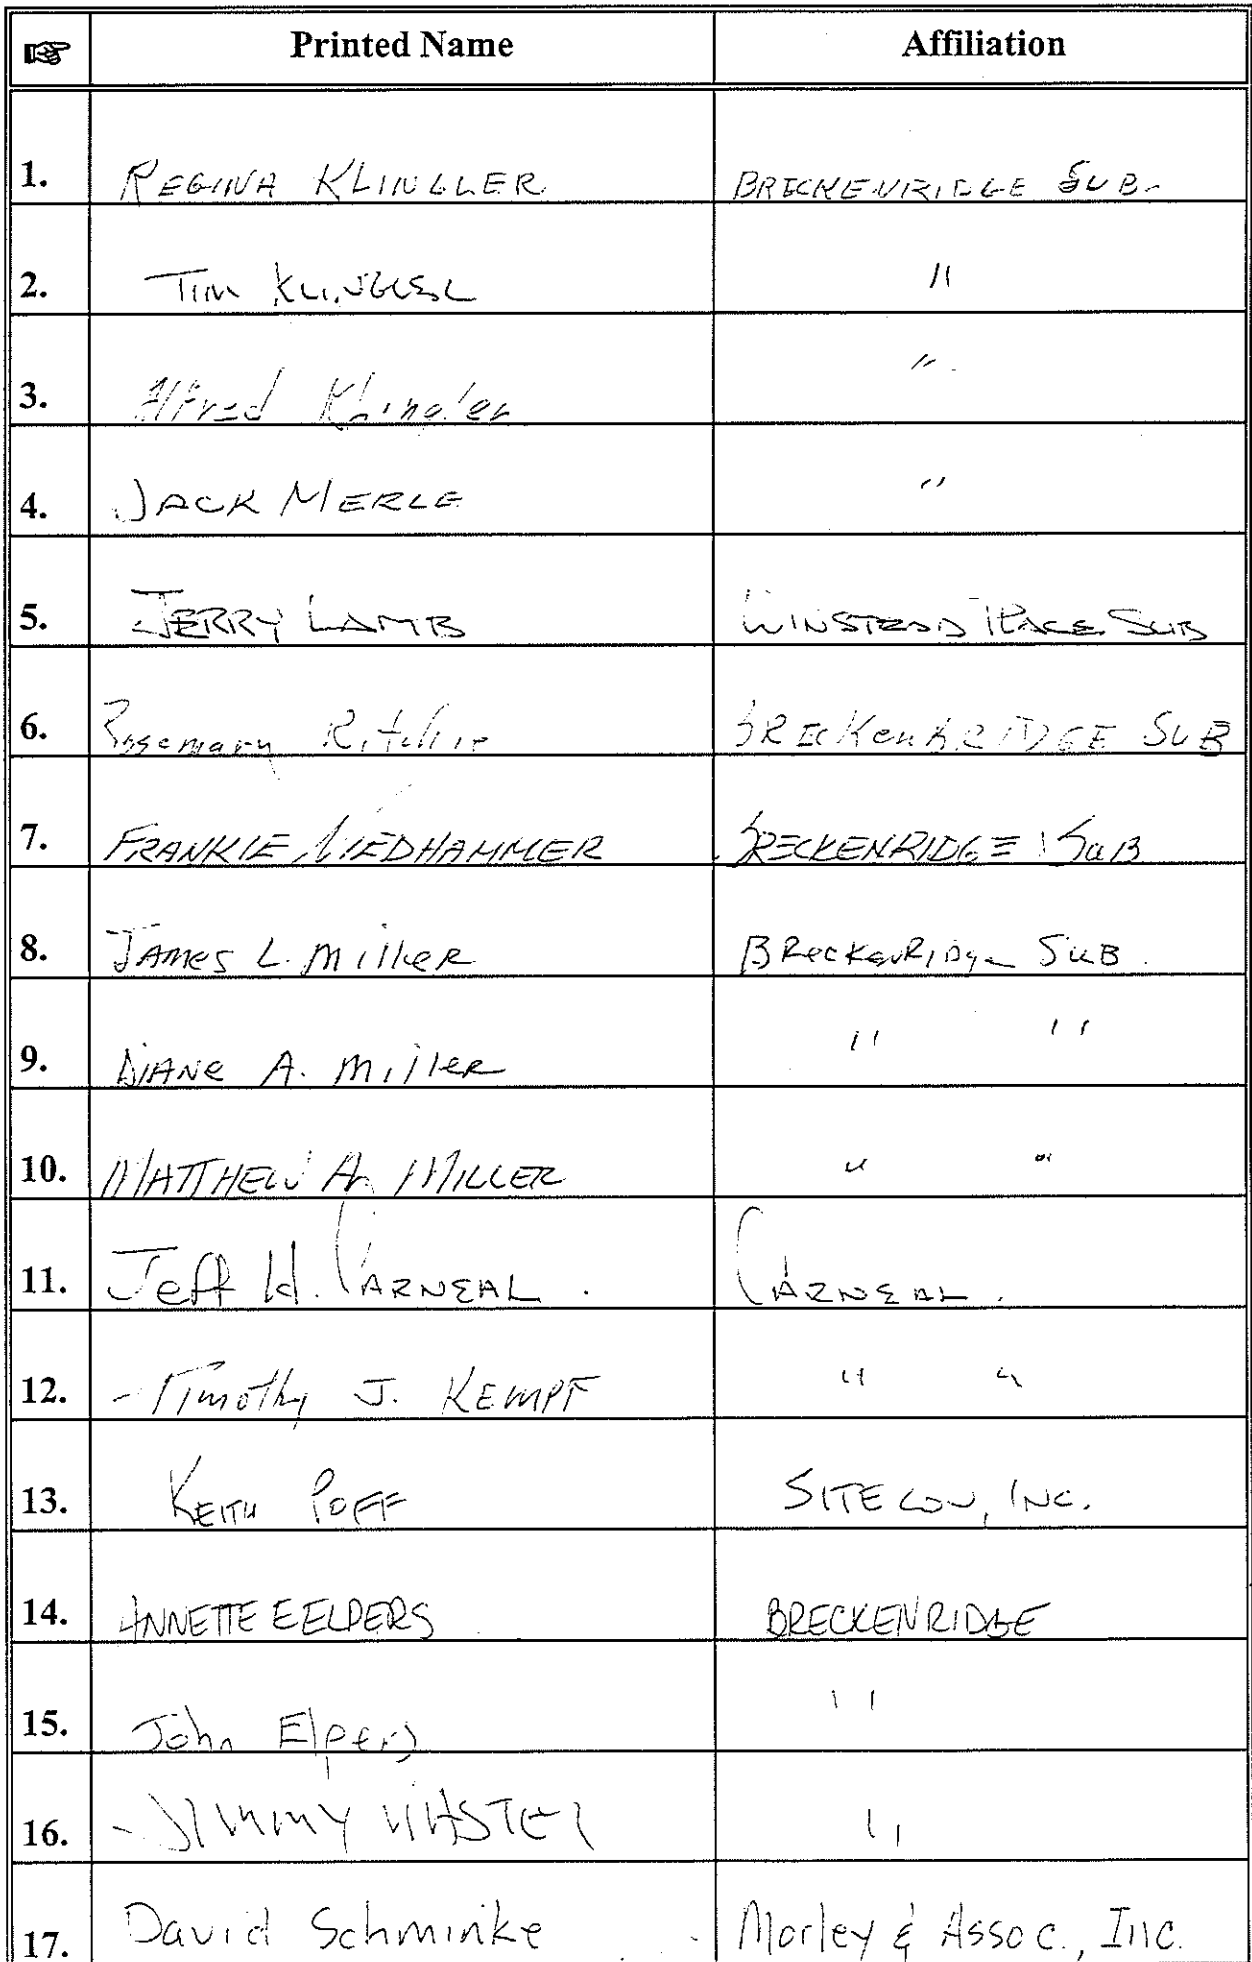 ☞ Printed Name Affiliation
1. REGINA KLINGLER BRECKENRIDGE SUB.
2. TIM KLINGLER "
3. Alfred Klingler "
4. JACK MERLE "
5. JERRY LAMB WINSTEAD PLACE SUB
6. Rosemary Ritchie BRECKenBRIDGE SUB
7. FRANKIE NIEDHAMMER BRECKENRIDGE SuB
8. JAMes L. MilleR BRecKenRiDge SuB.
9. DiANe A. MilleR " "
10. MATTHEW A. MILLER " "
11. Jeff H. CARNEAL. CARNEAL.
12. Timothy J. KEMPF " "
13. KEITH POFF SITECON, INC.
14. ANNETTE E ELPERS BRECKENRIDGE
15. John Elpers "
16. JIMMY "
17. David Schminke Morley & Assoc., Inc.